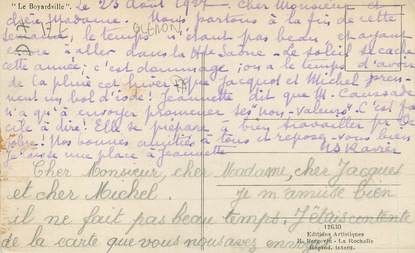 "Le Boyardville".
Le 23 Août 19 Cher Monsieur et
chère Madame. Nous partons à la fin de cette
semaine, le temps n'étant pas beau et ayant
encore à aller dans la Hte Saône. Le soleil se cache
cette année; c'est dommage; on a le temps d'avoir
de la pluie cet hiver. Jacquot et Michel pren-
nent un bol d'iode! Jeannette dit que M. Caussade
n'a qu'à envoyer promener ses "non-valeurs". C'est fa-
cile à dire! Elle se prépare à bien travailler
Nos bonnes amitiés à tous et reposez-vous bien
Je laisse une place à Jeannette
OLERON
Cher Monsieur, cher Madame, cher Jacques
et cher Michel. Je m'amuse bien
il ne fait pas beau temps. J'étais contente
de la carte que vous nous avez
12630
Editions Artistiques
R. Bergevin - La Rochelle